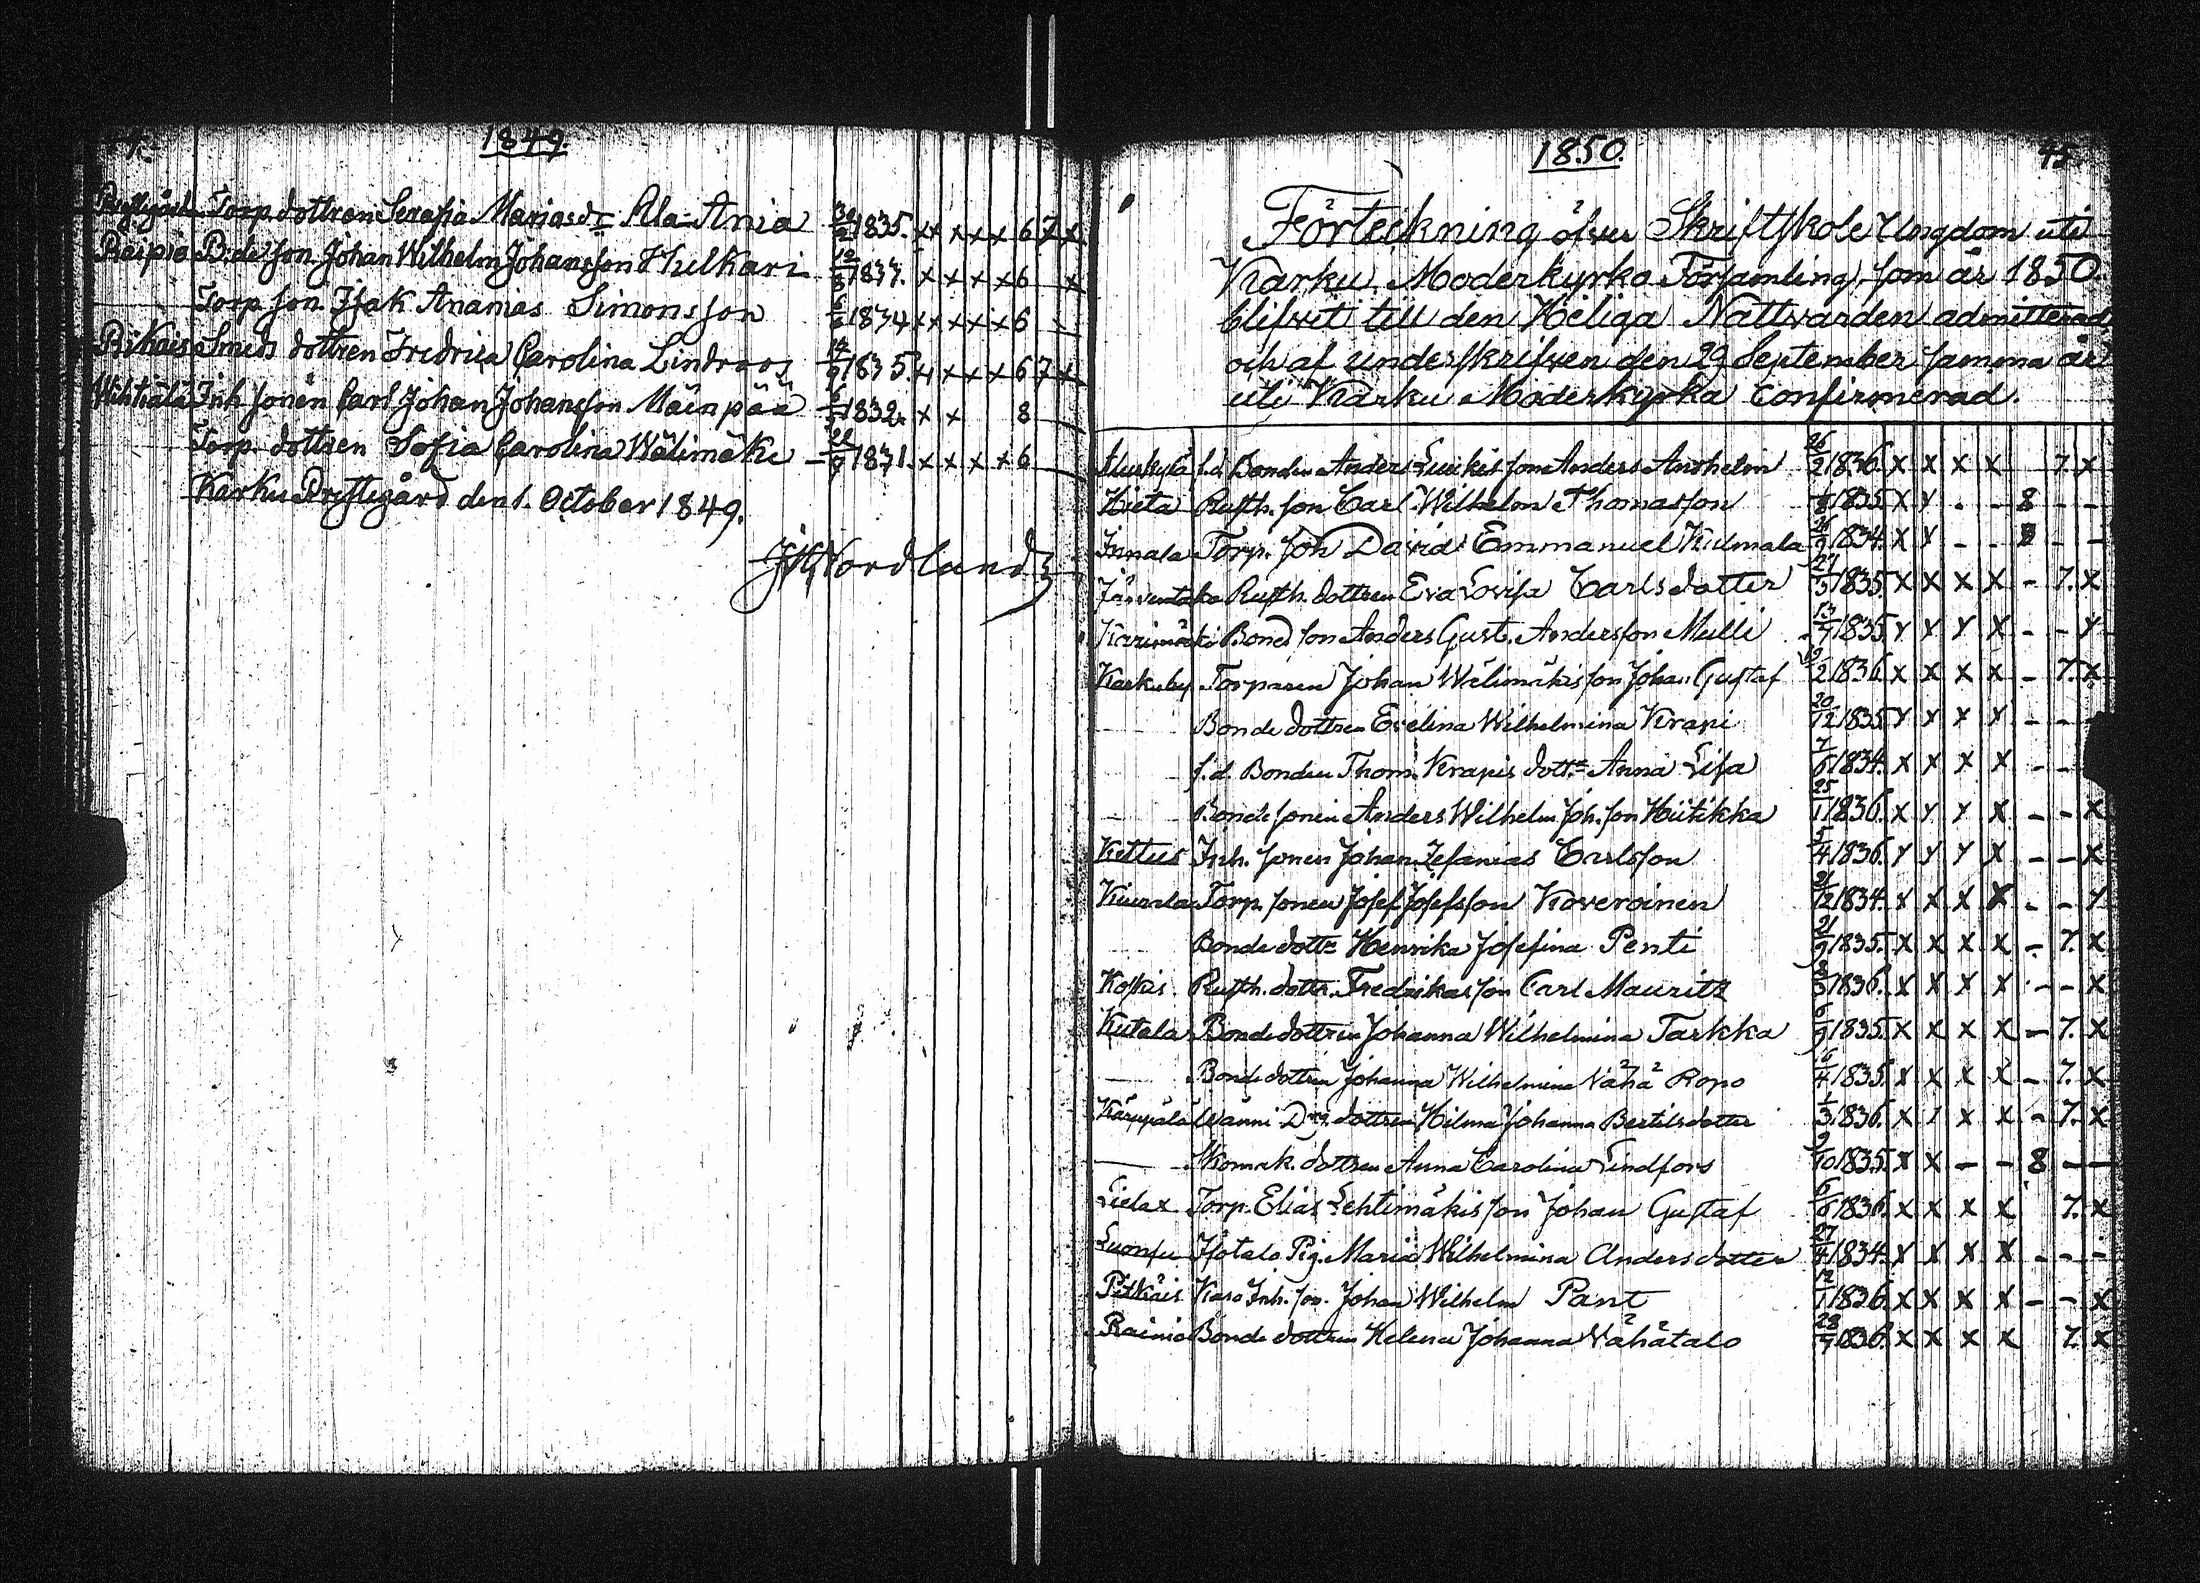 1849.
Torp. dottren Serafia Mariasdr Ala Ania 30/2 1835. x x x x x 6 7 x
Raipio B:desson Johan Wilhelm Johansson Hulkari 12/5 1837. x x x x 6 x
Torp. son Isak Ananias Simonsson 6/6 1834 x x x x x 6 –
Rikais Smeds dottren Fredrica Carolina Lindroos 14/9 1835. x x x x 6 7 x
Wihtiälä Inh. sonen Carl Johan Johansson Mäenpää 1832. x x 8
Torp. dottren Sofia Carolina Wälimäki – 1831. x x x x 6
Karku Prestegård den 1. October 1849.
Nordlund
1850.
45
Förteckning öfver Skriftskole Ungdom uti
Karku Moderkyrko Församling, som år 1850.
blifvit till den Heliga Nattvarden admitterad,
och af underskrifven den 29 September samma år
uti Karku Moderkyrka Confirmerad.
f.d. Bonden Anders son Anders Anshelm 26/2 1836. x x x x 7. x
Hieta Rusth. son Carl Wilhelm Thomasson 1835 x x - - 8 - -
Innala Torp. son David Emmanuel Kulmala 1834. x x - - 8 - -
Järventaka Rusth. dottren Eva Lovisa Carlsdotter 27/3 1835. x x x x - 7. x
Karimäki Bond. son Anders Gust. Andersson Mulli 13/7 1835. x x x x - - x
Karkuby Torparen Johan Wälimäkis son Johan Gustaf 19/2 1836. x x x x - 7. x
Bonde dottren Evelina Wilhelmina Krapi 20/12 1835. x x x x - -
f.d. Bonden Thom. Krapis dottr Anna Lisa 7/6 1834. x x x x - -
Bonde sonen Anders Wilhelm Joh. son Hiitikka 25/1 1836. x x x x - - x
Kettus Inh. sonen Johan Zefanias Carlsson 5/4 1836. x x x x - - x
Kiurala Torp. sonen Josef Josefsson Koveroinen 21/12 1834. x x x x - - x
Bonde dottr Henrika Josefina Penti 21/9 1835. x x x x - 7. x
Koskis Rusth. dottr. Fredrikas son Carl Mauritz 8/3 1836. x x x x - - x
Kutala Bonde dottren Johanna Wilhelmina Tarkka 6/9 1835. x x x x - 7. x
Bonde dottren Johanna Wilhelmina Vähä Ropo 16/4 1835. x x x x - 7. x
Kärppälä Wänni Drg. dottren Hilma Johanna Bertilsdotter 1/3 1836. x x x x - 7. x
Skomak. dottren Anna Carolina Lindfors 9/10 1835. x x - - 8 - -
Lielax Torp. Elias Lehtimäkis son Johan Gustaf 6/6 1836. x x x x 7. x
Isotalo Pig. Maria Wilhelmina Andersdotter 27/4 1834. x x x x - - -
Pitkäis Karo Inh. son Johan Wilhelm Pant 12/1 1836. x x x x - - x
Rainio Bonde dottren Helena Johanna Vähätalo 28/7 1836. x x x x 7. x